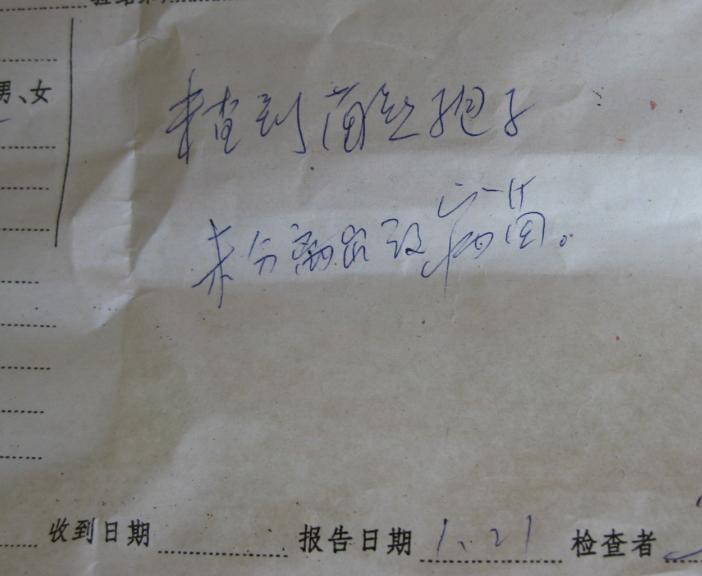 男、女
未查到菌丝孢子
未分离出致病菌。
收到日期 报告日期 1.21 检查者